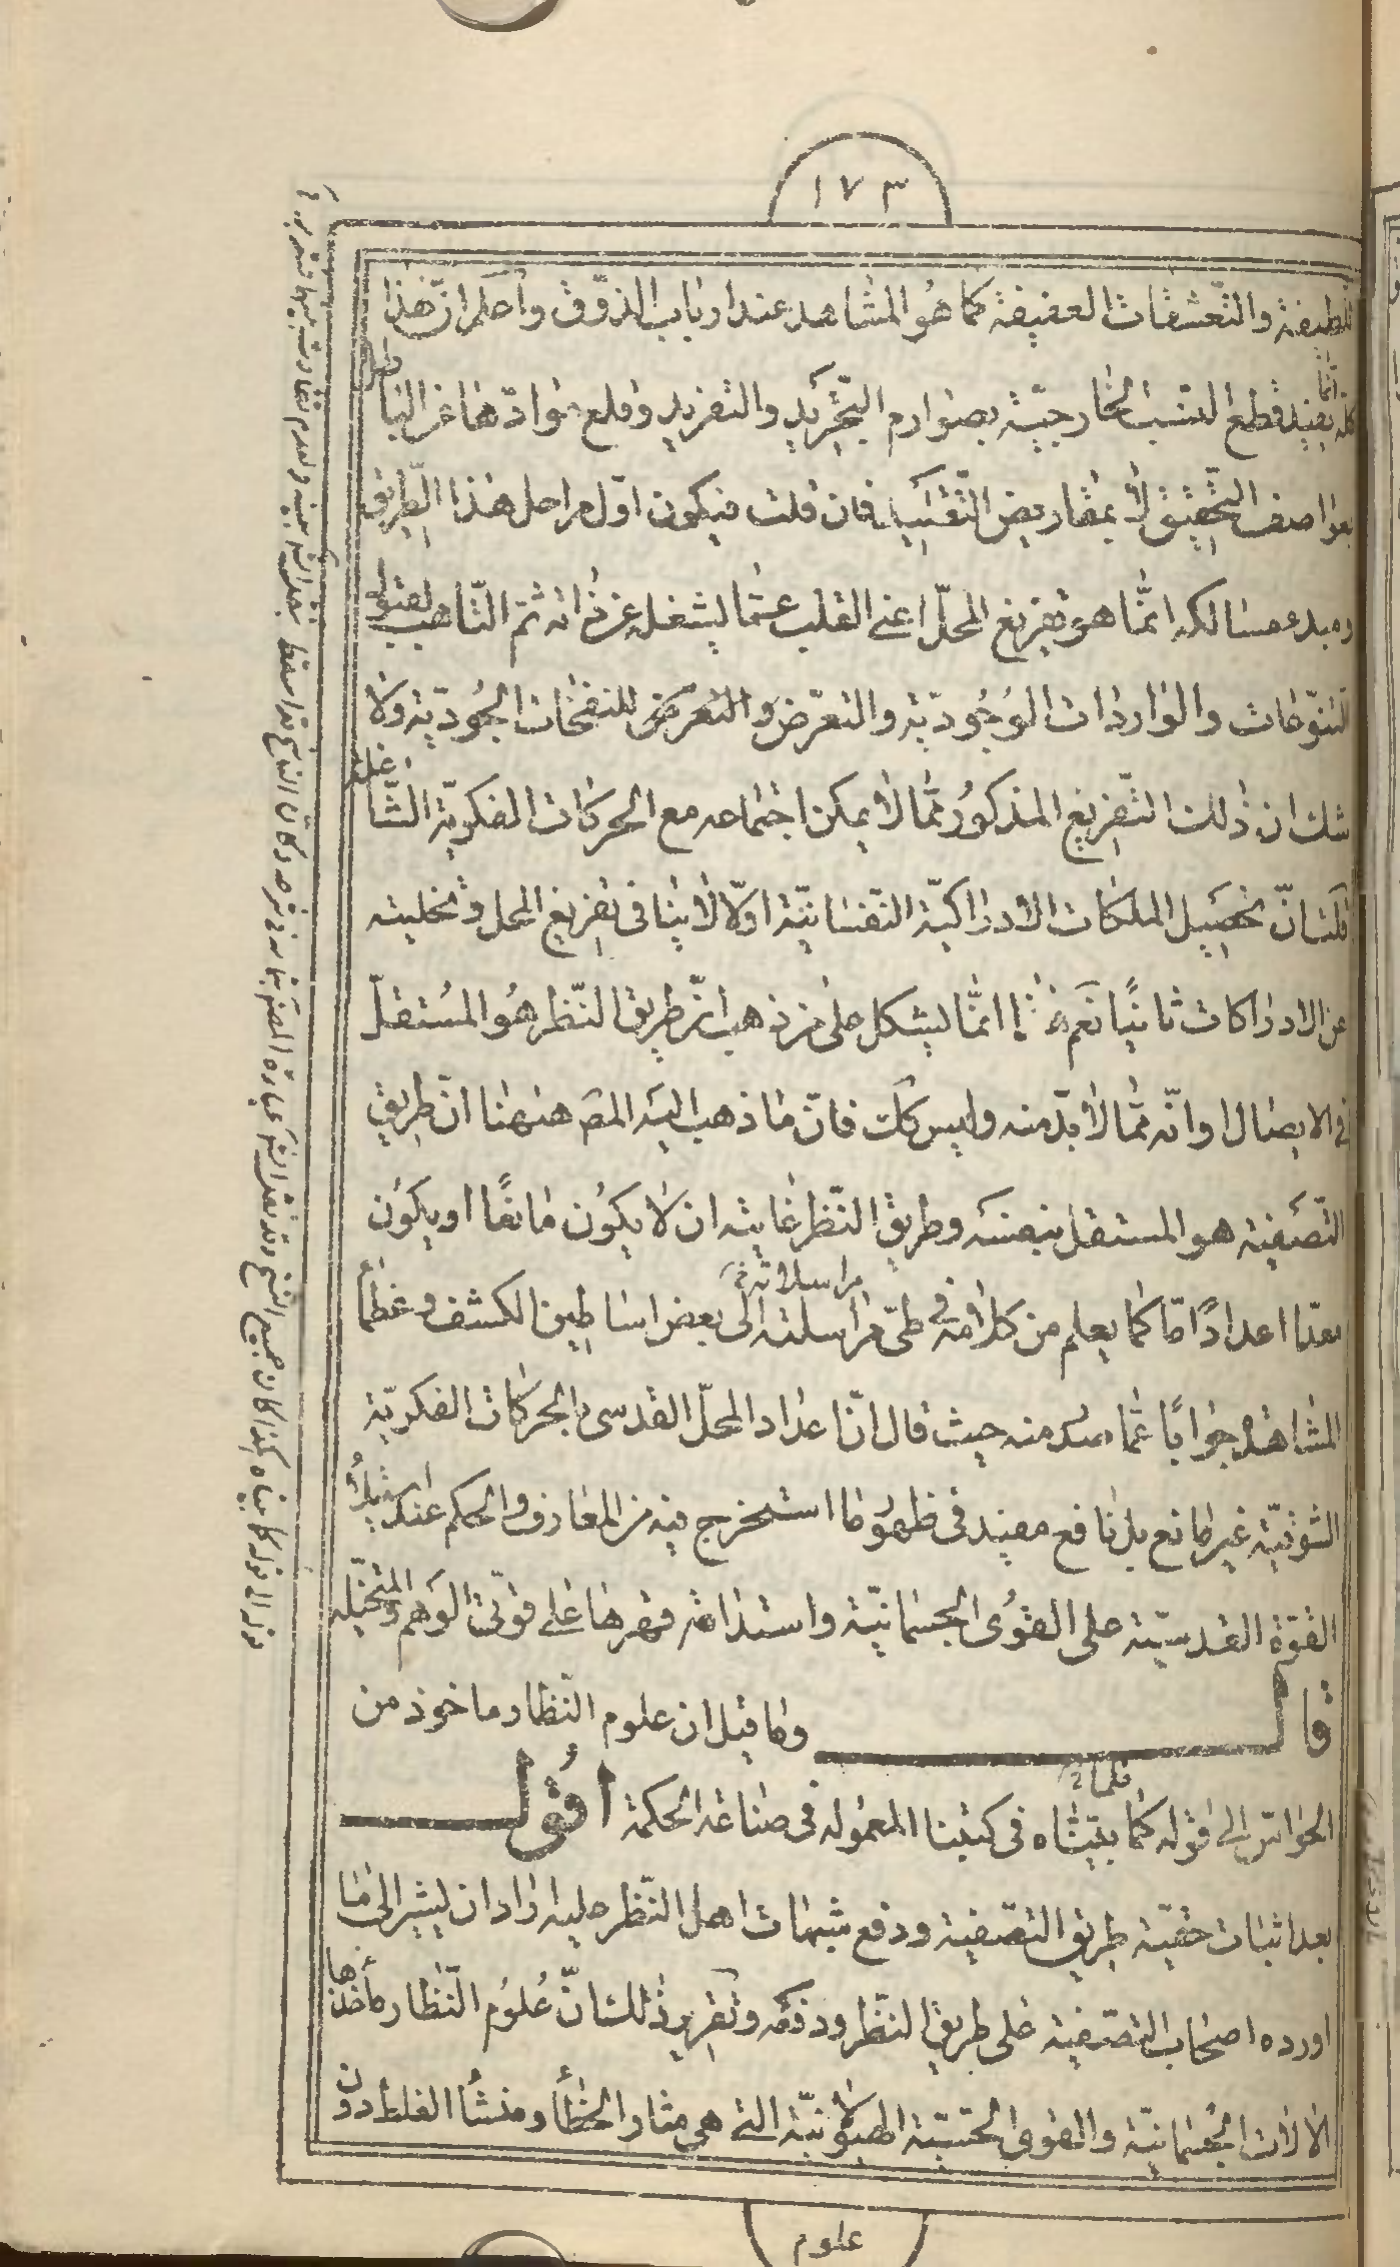 ١٧٣
اللطيفة والتعشقات العفيفة كما هو المشاهد عند ارباب الذوق واعلم ان هذا
كله انما يفيد قطع النسب الخارجية بصوارم التجريد والتفريد وقلع موادها عن الباطن
بعواصف التحقيق لا بمقاريض التقييد فان قلت فيكون اول مراحل هذا الطريق
ومبدء مسالكه انما هو تفريغ المحل اعنى القلب عما يشغله عن ذاته ثم التاهب لقبول
التنوعات والواردات الوجودية والتعرض والتعرض للنفحات الجودية ولا
شك ان ذلك التفريغ المذكور مما لا يمكن اجتماعه مع الحركات الفكرية الشاغلة
قلت ان تحصيل الملكات الادراكية النفسانية اولا لا ينافى تفريغ المحل وتخليته
عن الادراكات ثانيا نعم هذا انما يشكل على من ذهب ان طريق النظر هو المستقل
فى الايصال او انه مما لا بد منه وليس كك فان ما ذهب اليه المصَ هنهنا ان طريق
التصفية هو المستقل بنفسه وطريق النظر غايته ان لا يكون مانعا او يكون
معدا اعدادا ما كما يعلم من كلامه فى طى مراسلته الى بعض اساطين الكشف وعظماء
مراسلاته خ
المشاهدة جوابا عما صدر منه حيث قال ان اعداد المحل القدسى بالحركات الفكرية
الشوقية غير مانع بل نافع مفيد فى ظهور ما استخرج فيه من المعارف والحكم عند استيلاء
القوة القدسية على القوى الجسمانية واستدامة قهرها على قوتى الوهم والمتخيلة
قال وما قيل ان علوم النظار ماخوذ من
الحواس الى قوله كما بيناه فى كتبنا المعمولة فى صناعة الحكمة اقول
بعد اثبات حقية طريق التصفية ودفع شبهات اهل النظر عليه اراد ان يشير الى ما
اورده اصحاب التصفية على طريق النظر ودفعه وتقرير ذلك ان علوم النظار مأخذها
الالات الجسمانية والقوى الحسية الهيولانية التى هى مثار الخطأ ومنشأ الغلط دون
علوم